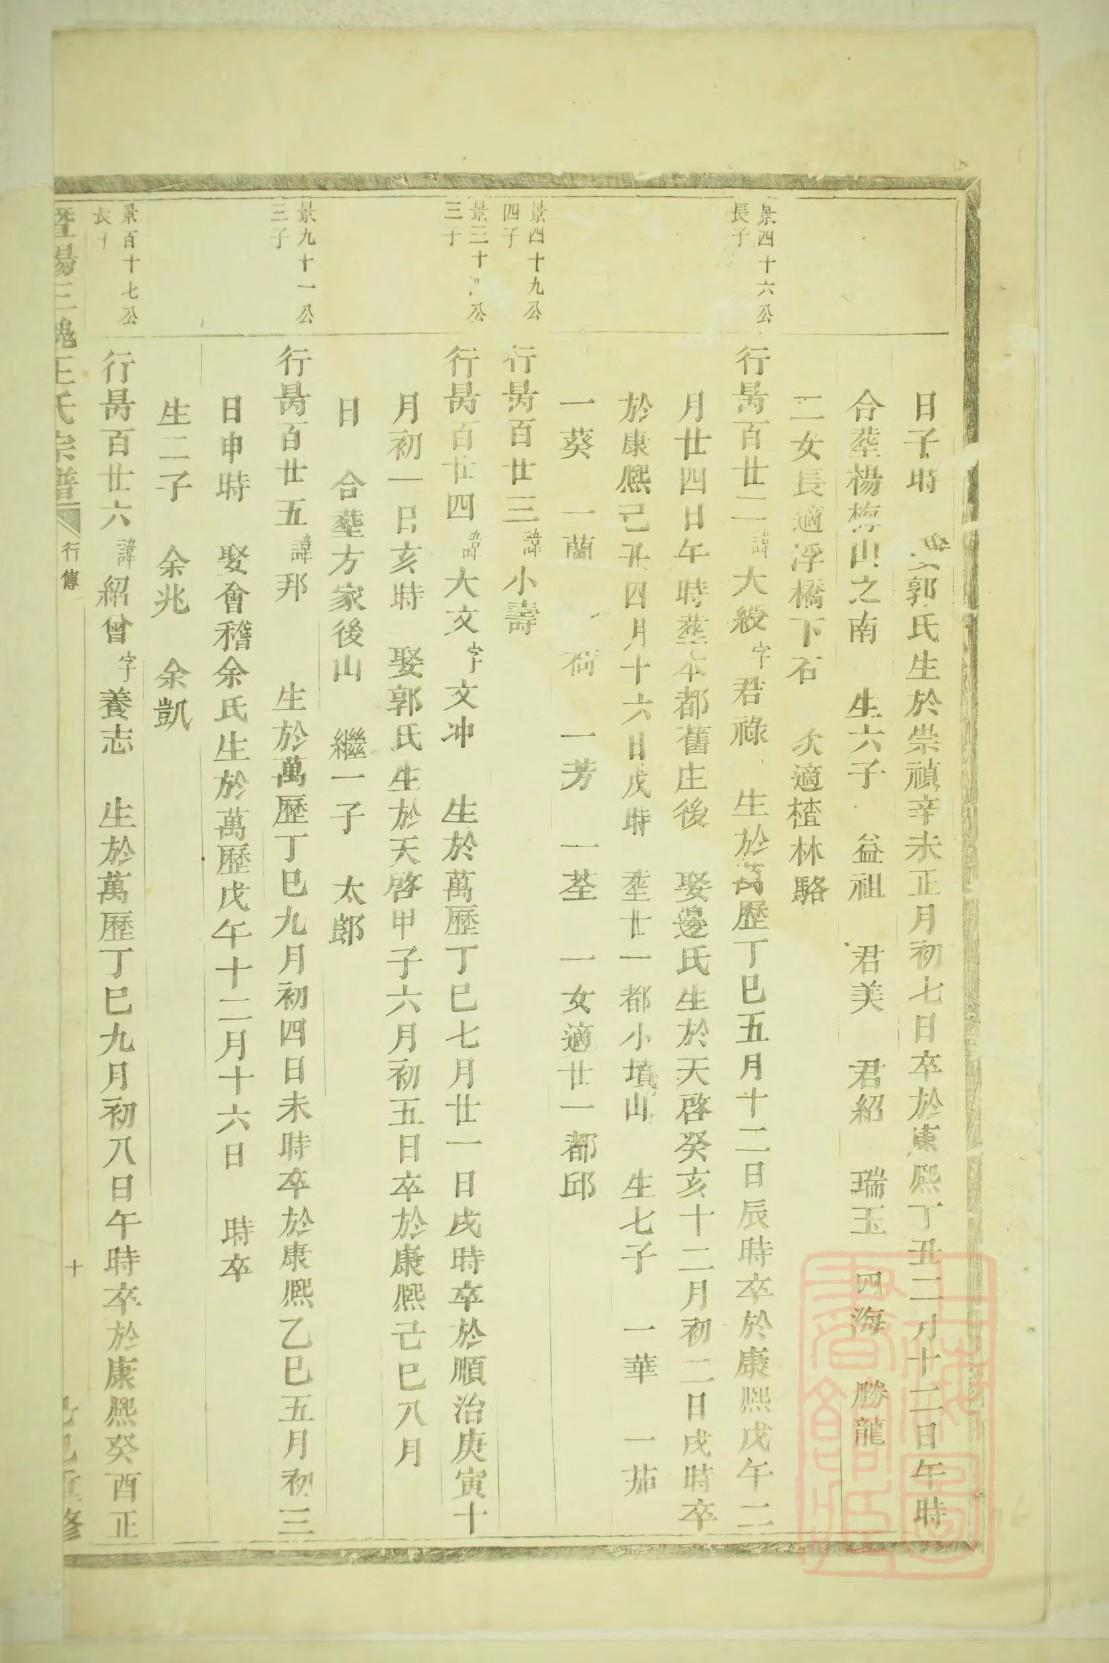 日子時　娶郭氏生於崇禎辛未正月初七日卒於康熙丁丑二月十二日午時
合塟楊梅山之南　生六子　益祖　君美　君紹　瑞玉　四海　勝龍
二女長適浮橋下石　次適楂林駱
景四十六公
長子
行昺百廿二諱大綬字君祿　生於萬歷丁巳五月十二日辰時卒於康熙戊午二
月廿四日午時塟本都舊庄後　娶邊氏生於天啓癸亥十二月初二日戌時卒
於康熙己丑四月十六日戌時　塟廿一都小墳山　生七子　一華　一茄
一葵　一蘭　一荷　一芳　一荃　一女適廿一都邱
景四十九公
四子
行昺百廿三諱小壽
景三十　公
三子
行昺百廿四諱大文字文冲　生於萬歷丁巳七月廿一日戌時卒於順治庚寅十
月初一日亥時　娶郭氏生於天啓甲子六月初五日卒於康熙己巳八月
日　合塟方家後山　繼一子　太郎
景九十一公
三子
行昺百廿五諱邦　生於萬歷丁巳九月初四日未時卒於康熙乙巳五月初三
日申時　娶會稽余氏生於萬歷戊午十二月十六日　時卒
生二子　余兆　余凱
景百十七公
長子
行昺百廿六諱紹曾字養志　生於萬歷丁巳九月初八日午時卒於康熙癸酉正
暨陽三槐王氏宗譜　行傳　十　己巳重修
上海圖書館藏